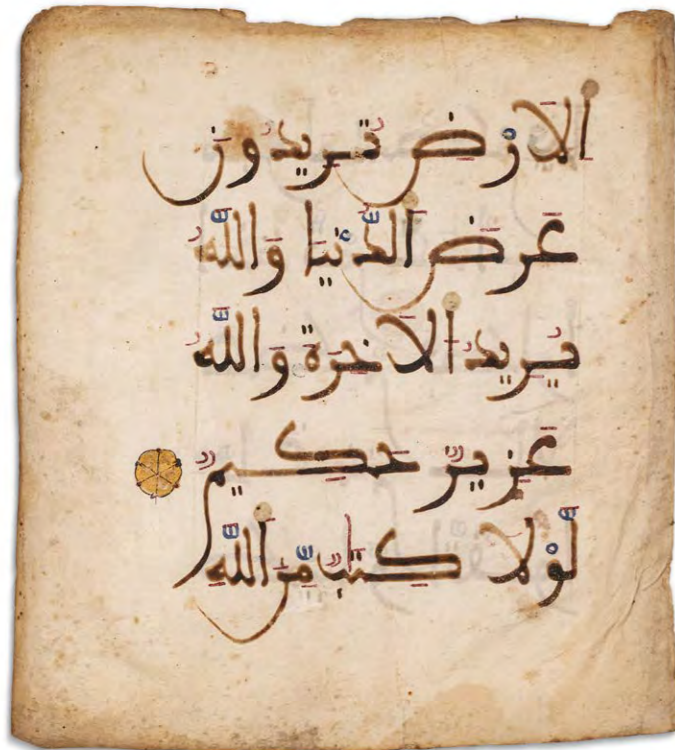 اَلَارْضِ تُرِيدُونَ
عَرَضَ اَلدُّنْيَا وَاللَّهُ
يُرِيدُ اُلَاخِرَةَ وَاللَّهُ
عَزِيزٌ حَكِيمٌ
لَّوْلَا كِتَٰبٌ مِّنَ اَللَّهِ